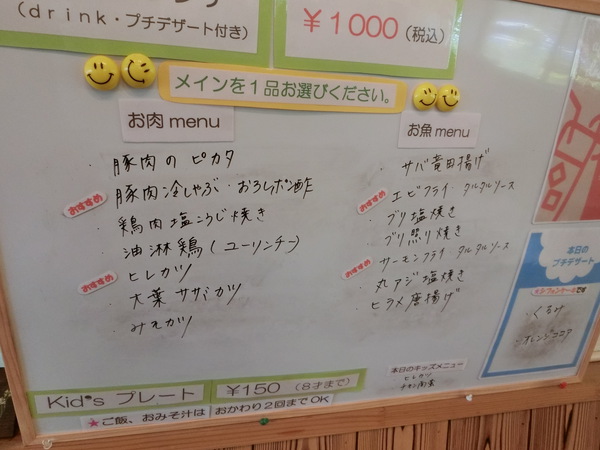 (drink・プチデザート付き)
¥1000(税込)
メインを1品お選びください。
お肉 menu
・豚肉のピカタ
おすすめ 豚肉冷しゃぶ・おろしポン酢
・鶏肉塩こうじ焼き
・油淋鶏(ユーリンチー)
おすすめ ヒレカツ
・大葉ササミカツ
・みそカツ
お魚 menu
・サバ竜田揚げ
おすすめ エビフライ・タルタルソース
・ブリ塩焼き
・ブリ照り焼き
おすすめ サーモンフライ・タルタルソース
・丸アジ塩焼き
・ヒラメ唐揚げ
本日の
プチデザート
★シフォンケーキです
・くるみ
・オレンジココア
本日のキッズメニュー
・ヒレカツ
Kid's プレート
¥150(8才まで)
★ご飯、おみそ汁は おかわり2回までOK